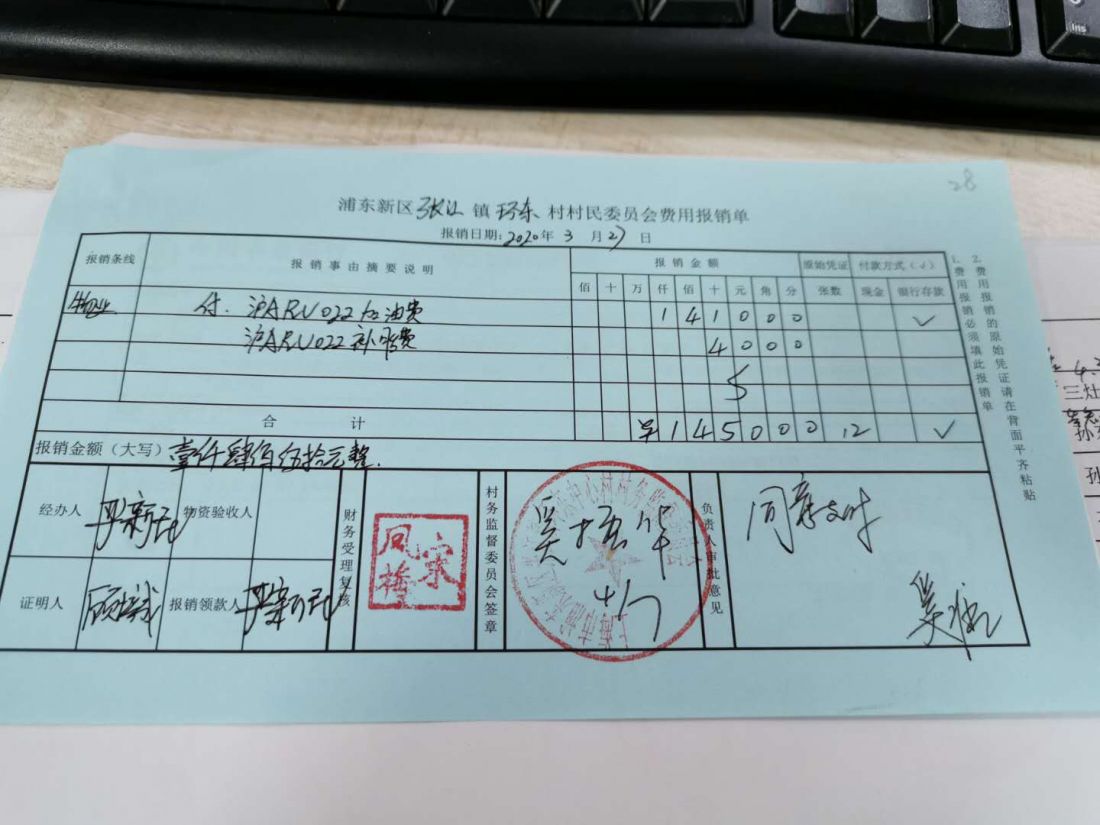 28
浦东新区张江镇环东村村民委员会费用报销单
报销日期:2020年3月27日
报销条线 报销事由摘要说明 报销金额 原始凭证 付款方式(√)
佰 十 万 仟 佰 十 元 角 分 张数 现金 银行存款
物业 付.沪ARV022加油费 1 4 1 0 0 0 ✓
沪ARV022补胎费 4 0 0 0
5
合计 1 4 5 0 0 0 12 ✓
报销金额(大写)壹仟肆佰伍拾元整.
经办人 物资验收人
证明人 报销领款人
财务受理复核
宋凤梅
村务监督委员会签章
吴振华
4/7
负责人审批意见
同意支付
1.费用报销必须填此报销单
2.费用报销的原始凭证请在背面平齐粘贴
三灶
孙